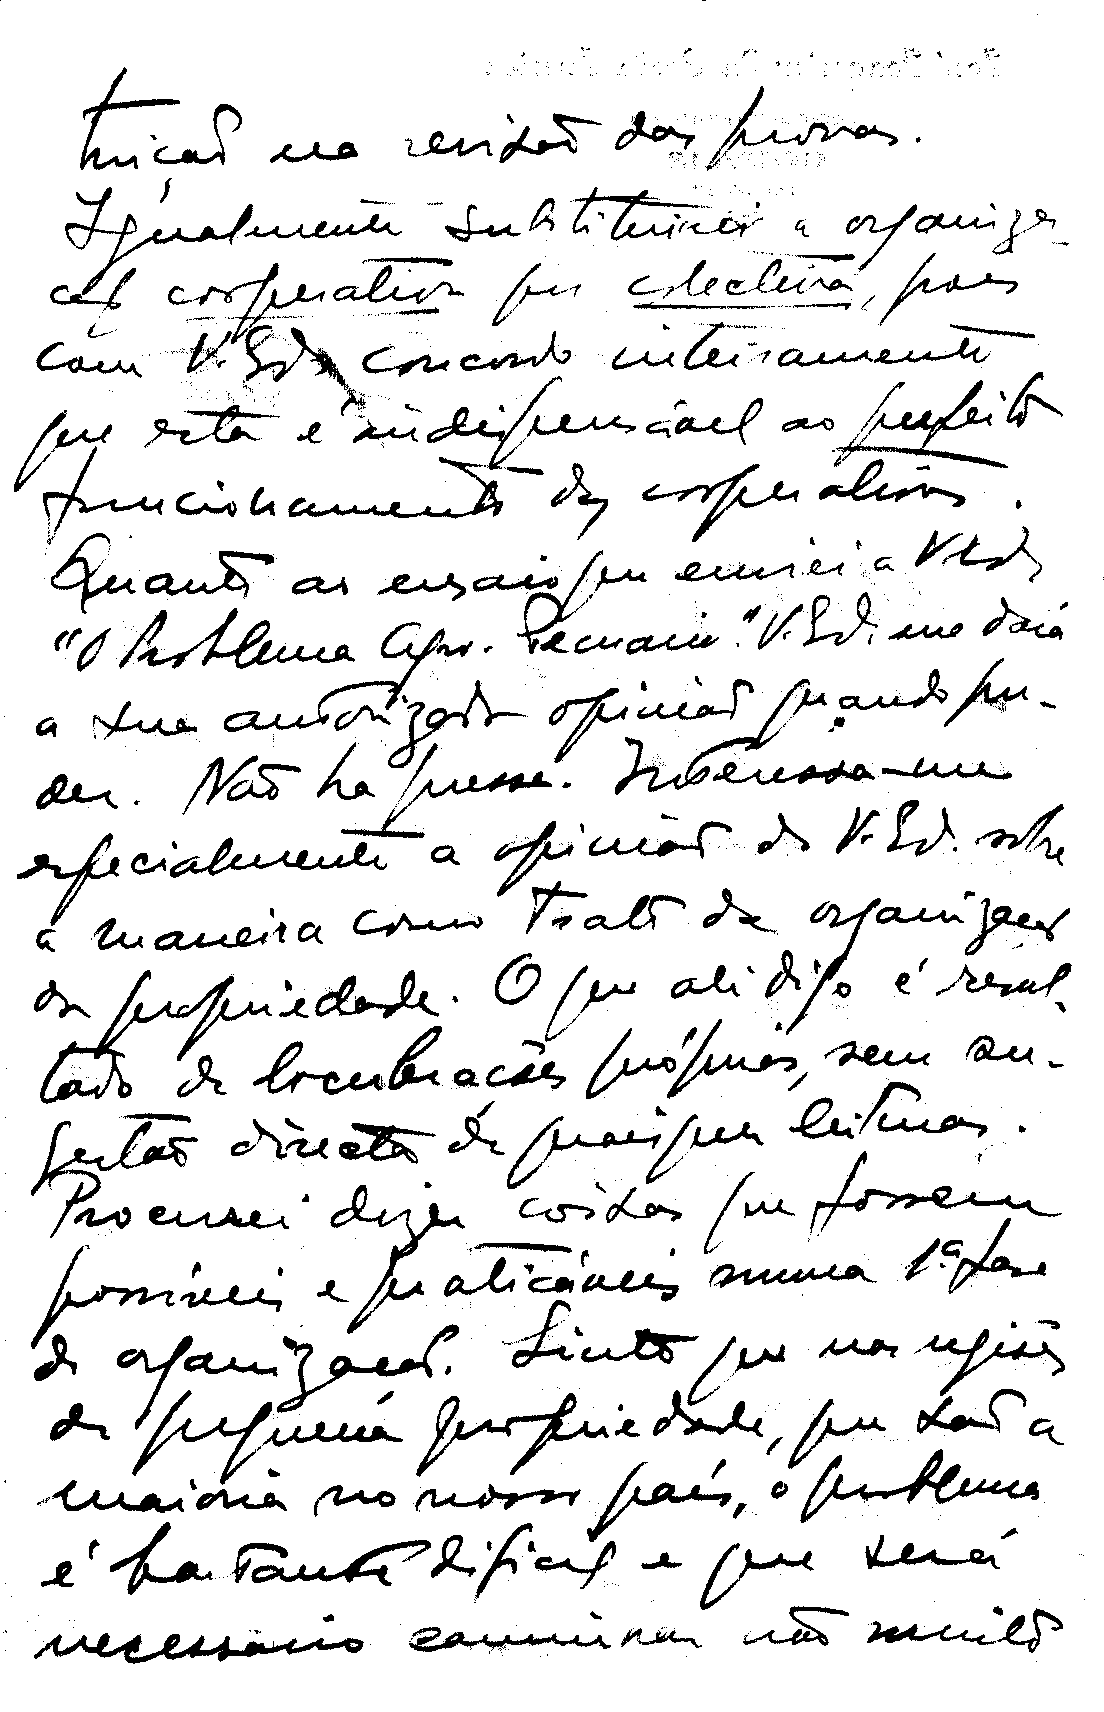 tuição na revisão das provas.
Igualmente substituirei a organiza-
ção cooperativa por colectiva, pois
com V. Exª concordo inteiramente
que esta é indispensável ao perfeito
funcionamento das cooperativas.
Quanto ao ensaio que enviei a V. Exª
"O Problema Agro-Pecuario". V. Exª. me dará
a sua autorizada opinião quando pu-
der. Não ha pressa. Interessa-me
especialmente a opinião de V. Exª. sobre
a maneira como trato da organização
da propriedade. O que ali digo é resul-
tado de locubrações próprias, sem su-
gestão directa de quaisquer leituras.
Procurei dizer coisas que fossem
possíveis e praticáveis numa 1.ª fase
de organização. Sinto que nas regiões
de pequena propriedade, que são a
maioria no nosso país, o problema
é bastante difícil e que será
necessario caminhar não muito